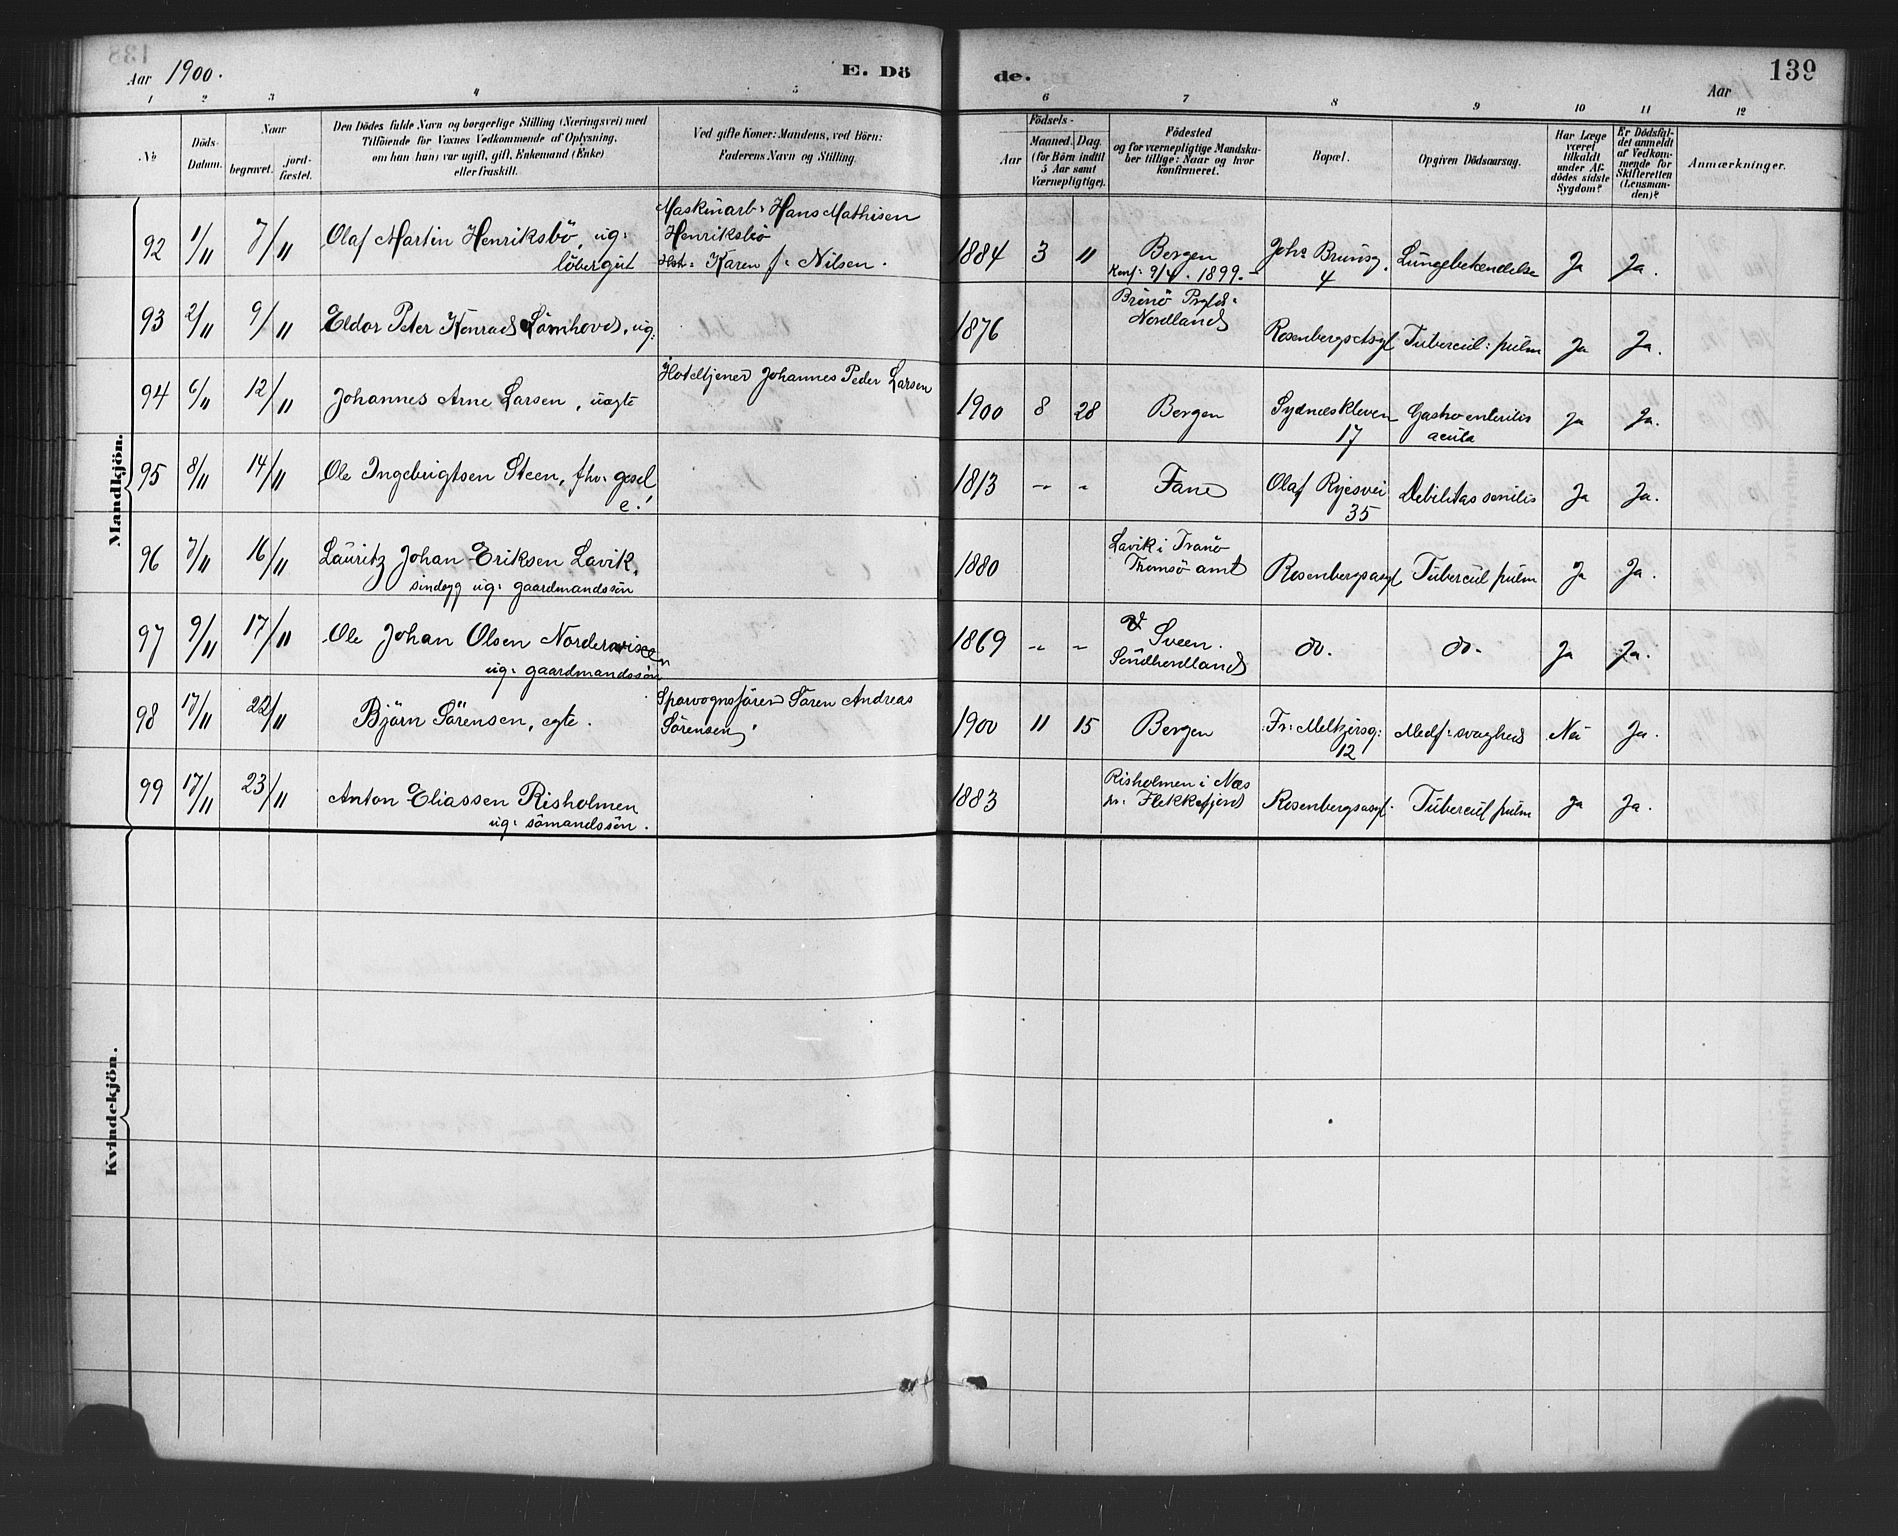 Aar 1900.
E. Dö
de.
Aar
139
1
2
3
4
5
6
7
8
9
10
11
12
No
Döds-
Datum.
Naar
begravet.
jord-
fæstet.
Den Dödes fulde Navn og borgerlige Stilling (Næringsvei) med
Tilföiende for Voxnes Vedkommende af Oplysning,
om han (hun) var ugift, gift, Enkemand (Enke)
eller fraskilt.
Ved gifte Koner: Mandens, ved Börn:
Faderens Navn og Stilling.
Födsels-
Aar
Maaned.
Dag.
(for Börn indtil
5 Aar samt
Værnepligtige).
Födested
og for værnepligtige Mandsku-
ber tillige: Naar og hvor
konfirmeret.
Bopæl.
Opgiven Dödsaarsag.
Har Læge
været
tilkaldt
under Af-
dödes sidste
Sygdom?
Er Dödsfal-
det anmeldt
af Vedkom-
mende for
Skifteretten
(Lensman-
den)?
Anmærkninger.
Mandkjön.
92 1/11 7/11 Olaf Martin Henriksbö, ug: löbergut
Maskinarb: Hans Mathisen
Henriksbö
Hst: Karen f: Nilsen.
1884 3 11 Bergen
Konf: 9/4. 1899.
Johs Brunsg. 4
Lungebetændelse Ja Ja.
93 2/11 9/11 Eldor Peter Konrad Lömhoved, ug:
1876
Brönö Prgld:
Nordland
Rosenbergs Asyl Tubercul: pulm Ja Ja.
94 6/11 12/11 Johannes Arne Larsen, uægte
Hoteltjener Johannes Peder Larsen
1900 8 28 Bergen
Sydneskleven 17
Gastro enteritis
acuta
Ja Ja.
95 8/11 14/11 Ole Ingebrigtsen Steen, fhv: gesel
e!
1813 -"- " Fane
Olaf Ryesvei 35
Debilitas senilis Ja Ja.
96 7/11 16/11 Lauritz Johan Eriksen Lavik,
sindsyg ug: gaardmandssön
1880
Lavik i Tranö
Tromsö amt
Rosenbergsasyl Tubercul pulm Ja Ja.
97 9/11 17/11 Ole Johan Olsen
ug: gaardmandssön
1869 -"- -"- Sveen.
Söndhordland
do. do. Ja Ja.
98 17/11 22/11 Björn Sörensen, ægte.
Sporvognsförer Sören Andreas
Sörensen
1900 11 15 Bergen
Fr: Meltzersg: 12
Medf: svaghed Nei Ja.
99 17/11 23/11 Anton Eliassen Risholmen
ug: sömandssön.
1883
Risholmen i Næs
pr: Flekkefjord
Rosenbergsasyl. Tubercul pulm Ja Ja.
Kvindekjön.